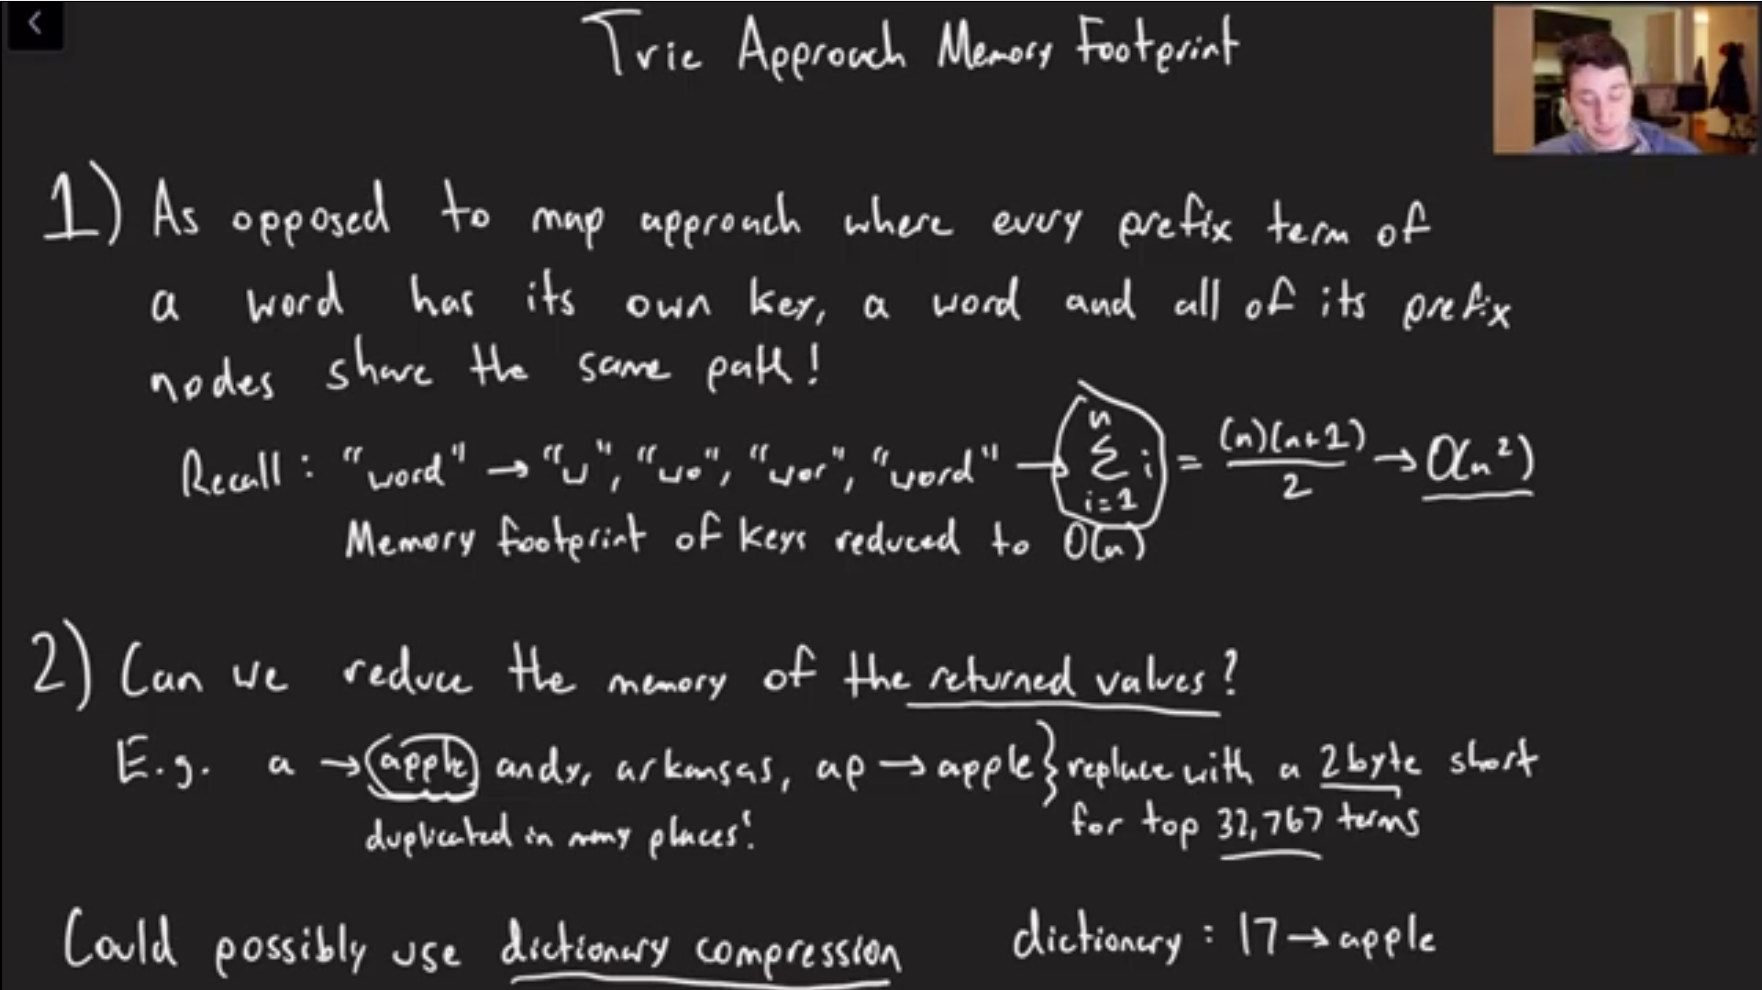 Trie Approach Memory Footprint
1) As opposed to map approach where every prefix term of
a word has its own key, a word and all of its prefix
nodes share the same path!
Recall: "word" → "w", "wo", "wor", "word" → n Σ i=1 i = (n)(n+1) / 2 → O(n²)
Memory footprint of keys reduced to O(n)
2) Can we reduce the memory of the returned values?
E.g. a → apple andy, arkansas, ap → apple } replace with a 2 byte short
duplicated in many places!
for top 32,767 terms
Could possibly use dictionary compression
dictionary: 17 → apple